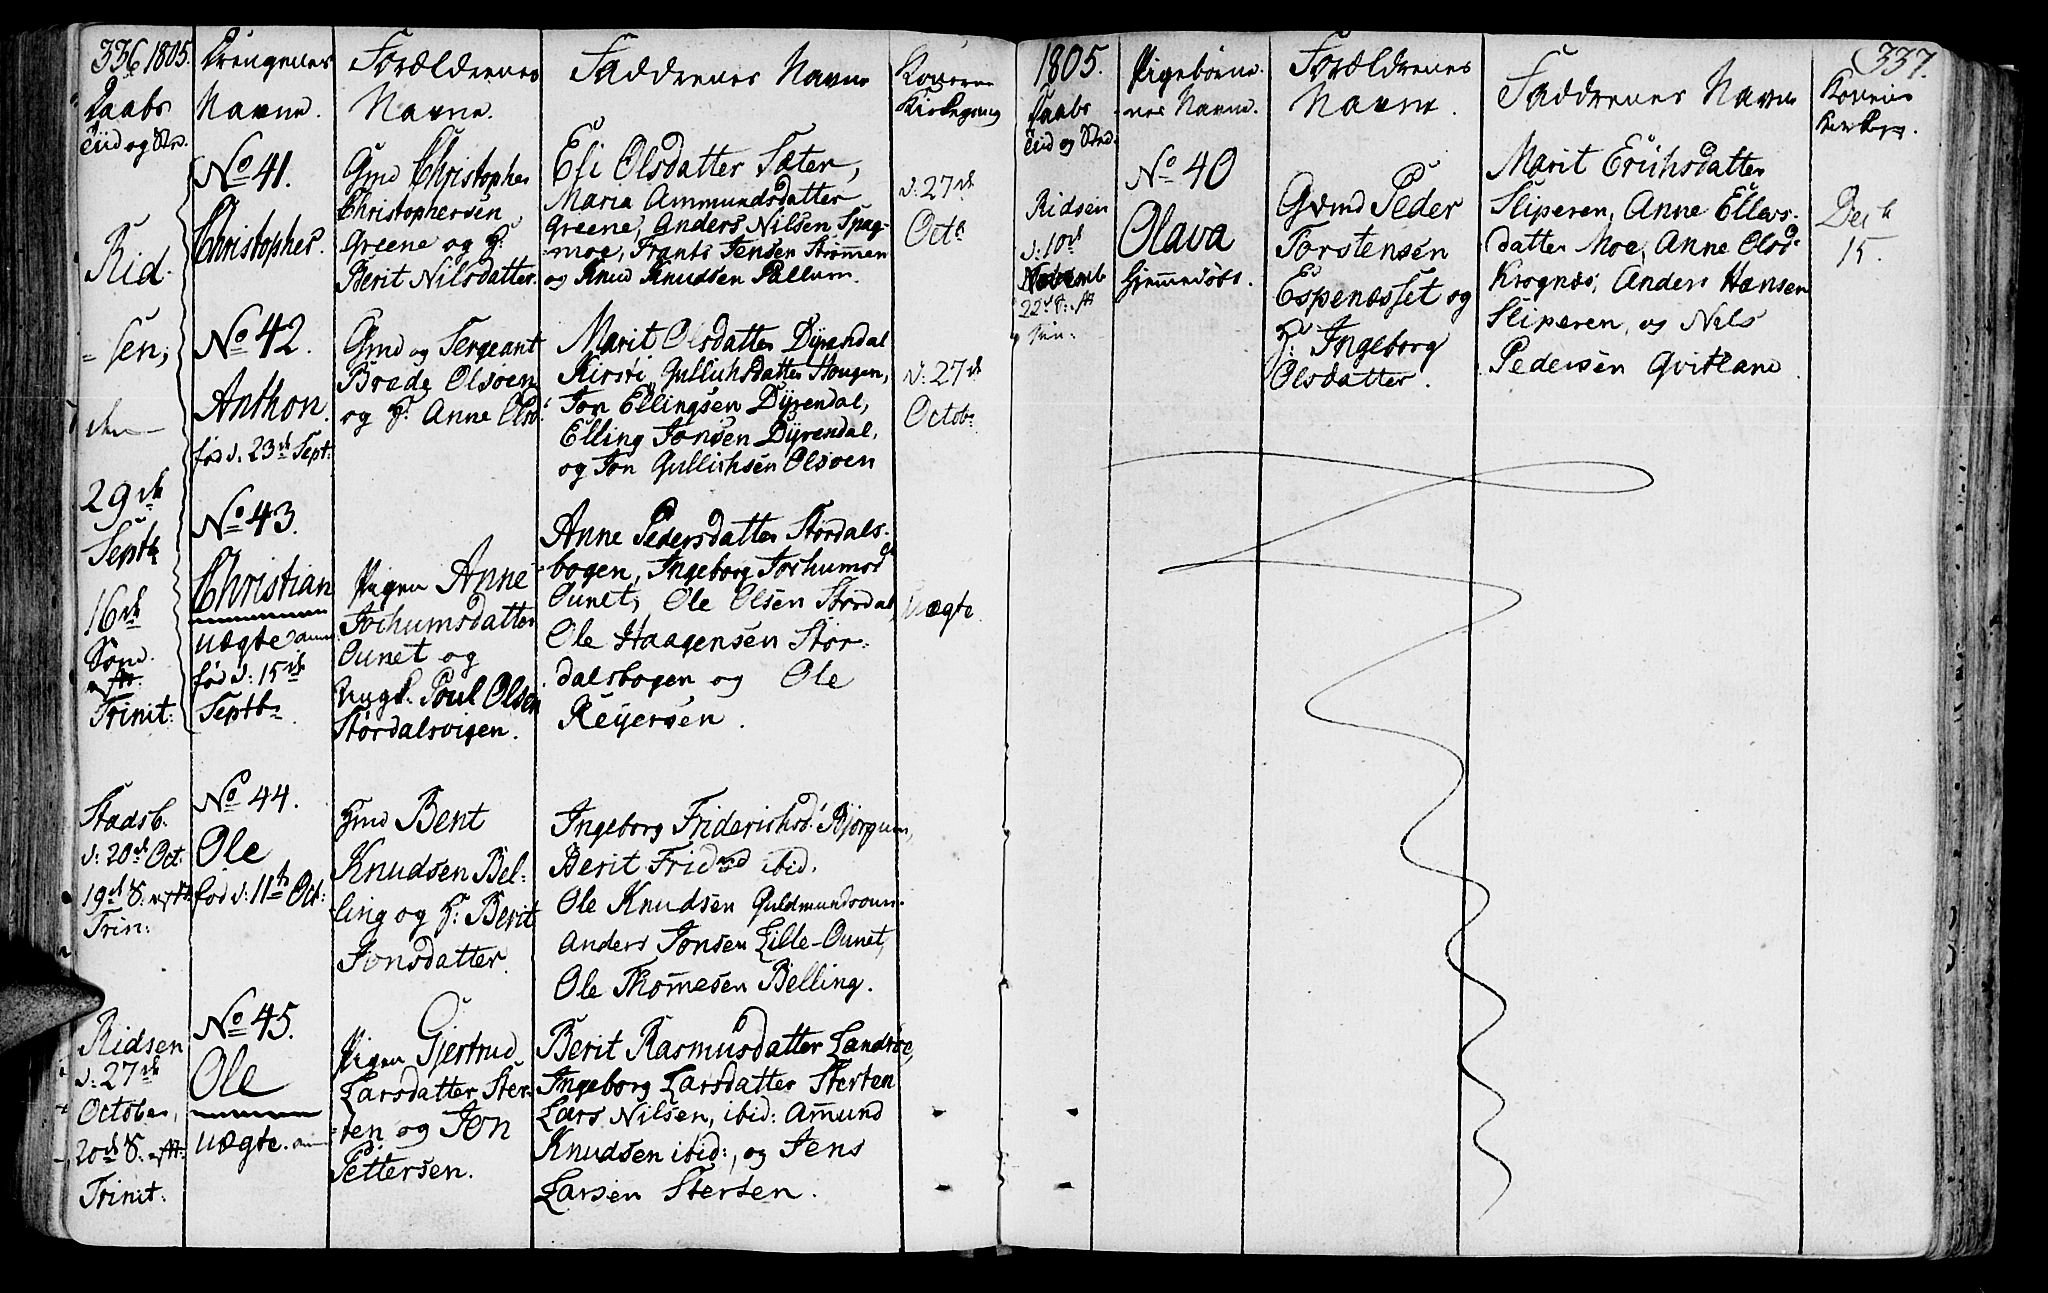 336 1805.
Daabs
Tiid og Sted.
Drengenes
Navne.
Forældrenes
Navne.
Faddrenes Navne
Konernes
Kirkegang
Rid-
-sen,
29de
Septb
16de
Sønd.
eft.
Trinit:
No 41.
Christopher.
Gmd Christopher
Christophersen
Greene og H:
Berit Nilsdatter.
Eli Olsdatter Sæter,
Maria Ammundsdatter
Greene, Anders Nilsen Spag-
-moe, Frants Jensen Strømmen
og Knud Knudsen Pallum.
d: 27de
Octb
No 42.
Anthon.
fød d. 23de Sept:
Gmd og Sergeant
Brede Olsøen
og H: Anne Olsd:
Marit Olsdatter Dÿrendal
Kirsti Gullichsdatter Hougen,
Jon Ellingsen Dÿrendal,
Elling Jonsen Dÿrendal,
og Jon Gullichsen Olsøen
d: 27de
Octobr
No 43.
Christian
uægte
fød d: 15de
Septbr
Pigen Anne
Jochumsdatter
Ounet og
Ungk. Poul Olsen
Stordalsvigen.
Anne Pedersdatter Stordals-
-bogen, Ingeborg Jochumsd
Ounet, Ole Olsen Stordal,
Ole Haagensen Stor-
dalsbogen og Ole
Reyersen.
Uægte.
Stadsb.
d: 20de Oct.
19de S. eft.
Trin:
No 44.
Ole
fød d: 11te Oct:
Gmd Bent
Knudsen Bel-
-ling og H: Berit
Jonsdatter.
Ingeborg Friderichsd: Bjørgum,
Berit Frid ibid.
Ole Knudsen Guldmundsoun.
Anders Jonsen Lille-Ounet,
Ole Thomesen Belling.
Ridsen
d: 27de
October,
20de S. eft:
Trinit:
No 45.
Ole
uægte.
Pigen Gjertrud
Larsdatter Ster-
-ten og Jon
Pettersen.
Berit Rasmusdatter Landrøe,
Ingeborg Larsdatter Sterten
Lars Nilsen, ibid: Amund
Knudsen ibid:, og Jens
Larsen Sterten.
1805.
Daabs
Tiid og Sted
Pigebørne-
nes Navne.
Forældrenes
Navne.
Faddrenes Navne
337.
Konens
Ridsen
d: 10de
Novemb
22de S: eft
Trin:
No 40
Olava
hjemmedøbt.
Gmd Peder
Torstensen
Espenæsset og
H: Ingeborg
Olsdatter.
Marit Erichsdatter
Sliperen, Anne Ellevs-
datter Moe, Anne Olsd:
Krognæs, Anders Hansen
Sliperen, og Nils
Pedersen Qvitlane.
Decb
15.